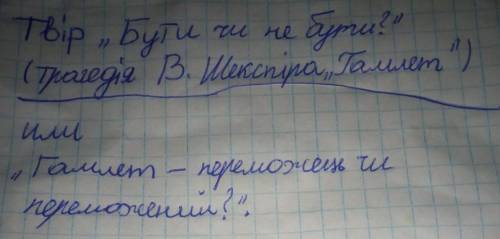 Твір „Бути чи не бути?"
(трагедія В. Шекспіра „Гамлет")
или
„Гамлет – переможець чи
переможений?".